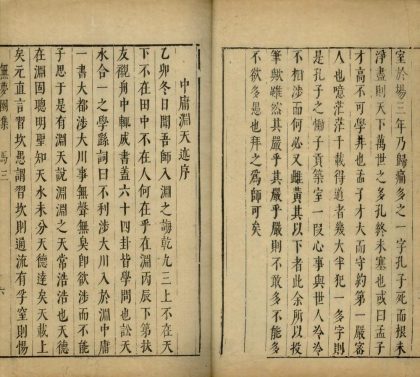 室於場三年乃歸痛一字孔子死而根未
淨盡則天下萬世之多孔終未塞也或曰孟子
才高不可學弊也孟子才大而守約第一嚴密
人也噫茫茫千載得道者幾大半犯一多字則
是孔子之慟子貢築室一段心事與世人泠泠
不相涉而何必又雌黃其以下者此余所以投
筆歎惟然其嚴乎其嚴乎嚴則不敢多不能多
不欲多愚也拜之爲師可矣
中庸淵天述序
乙卯冬日聞吾師入淵之誨乾九三上不在天
下不在田中不在人何在乎在淵丙辰下第扶
友觀舟中輒感書蓋六十四卦皆學問也訟天
水合一之學繇詞曰不利涉大川入於淵中庸
一書大都涉大川事無聲無臭卽欲涉而不能
子思于是有淵天說淵淵之天常浩浩也天德
在淵固聰明聖知天水未分天德達矣天載上
矣元直言習坎愚謂習坎則過流有孚窒則惕
無夢園集 馬三 六